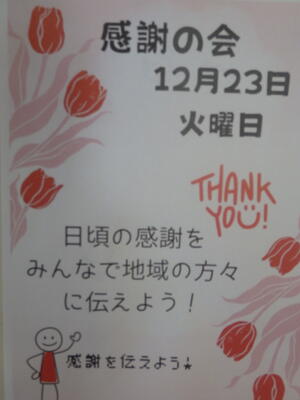 感謝の会
12月23日
火曜日
THANK
YOU!
日頃の感謝を
みんなで地域の方々
に伝えよう！
感謝を伝えよう★